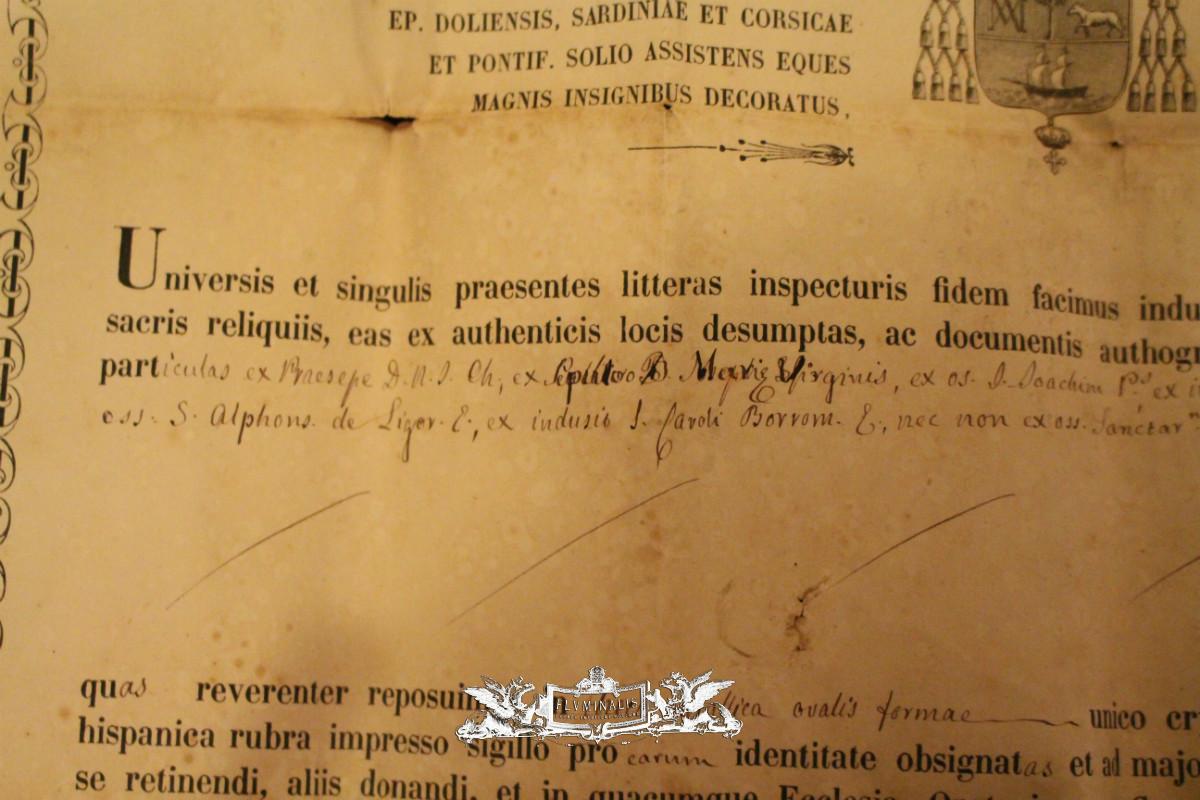 EP. DOLIENSIS, SARDINIAE ET CORSICAE
ET PONTIF. SOLIO ASSISTENS EQUES
MAGNIS INSIGNIBUS DECORATUS,
Universis et singulis praesentes litteras inspecturis fidem facimus indu
sacris reliquiis, eas ex authenticis locis desumptas, ac documentis authogr
particulas ex Praesepe D.N.J. Ch, ex B. Mariae Virginis, ex os. S. Joachim P.s ex
oss. S. Alphons. de Ligor. E., ex indusio S. Caroli Borrom. E., nec non ex oss. Sanctar
quas reverenter reposuim llica ovalis formae unico cr
FLVMINALIS
hispanica rubra impresso sigillo pro earum identitate obsignatas et ad majo
se retinendi, aliis donandi, et in quacumque Ecclesia